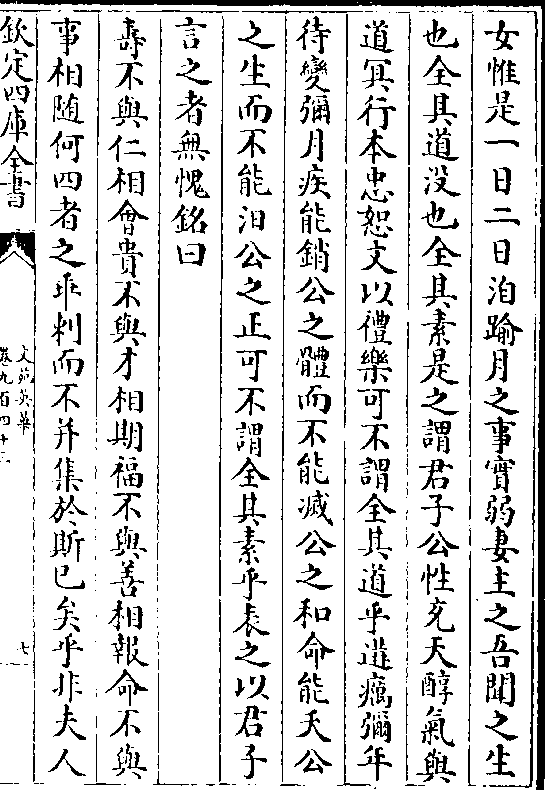 女惟是一日二日洎踰月之事實弱妻主之吾聞之生
也全其道没也全其素是之謂君子公性充天醇氣與
道冥行本忠恕文以禮樂可不謂全其道乎遘癘彌年
待變彌月疾能銷公之體而不能滅公之和命能夭公
之生而不能汨公之正可不謂全其素乎表之以君子
言之者無愧銘曰
壽不與仁相會貴不與才相期福不與善相報命不與
事相随何四者之乖剌而不并集於斯已矣乎非夫人
欽定四庫全書
文苑英華
卷九百四十三
七